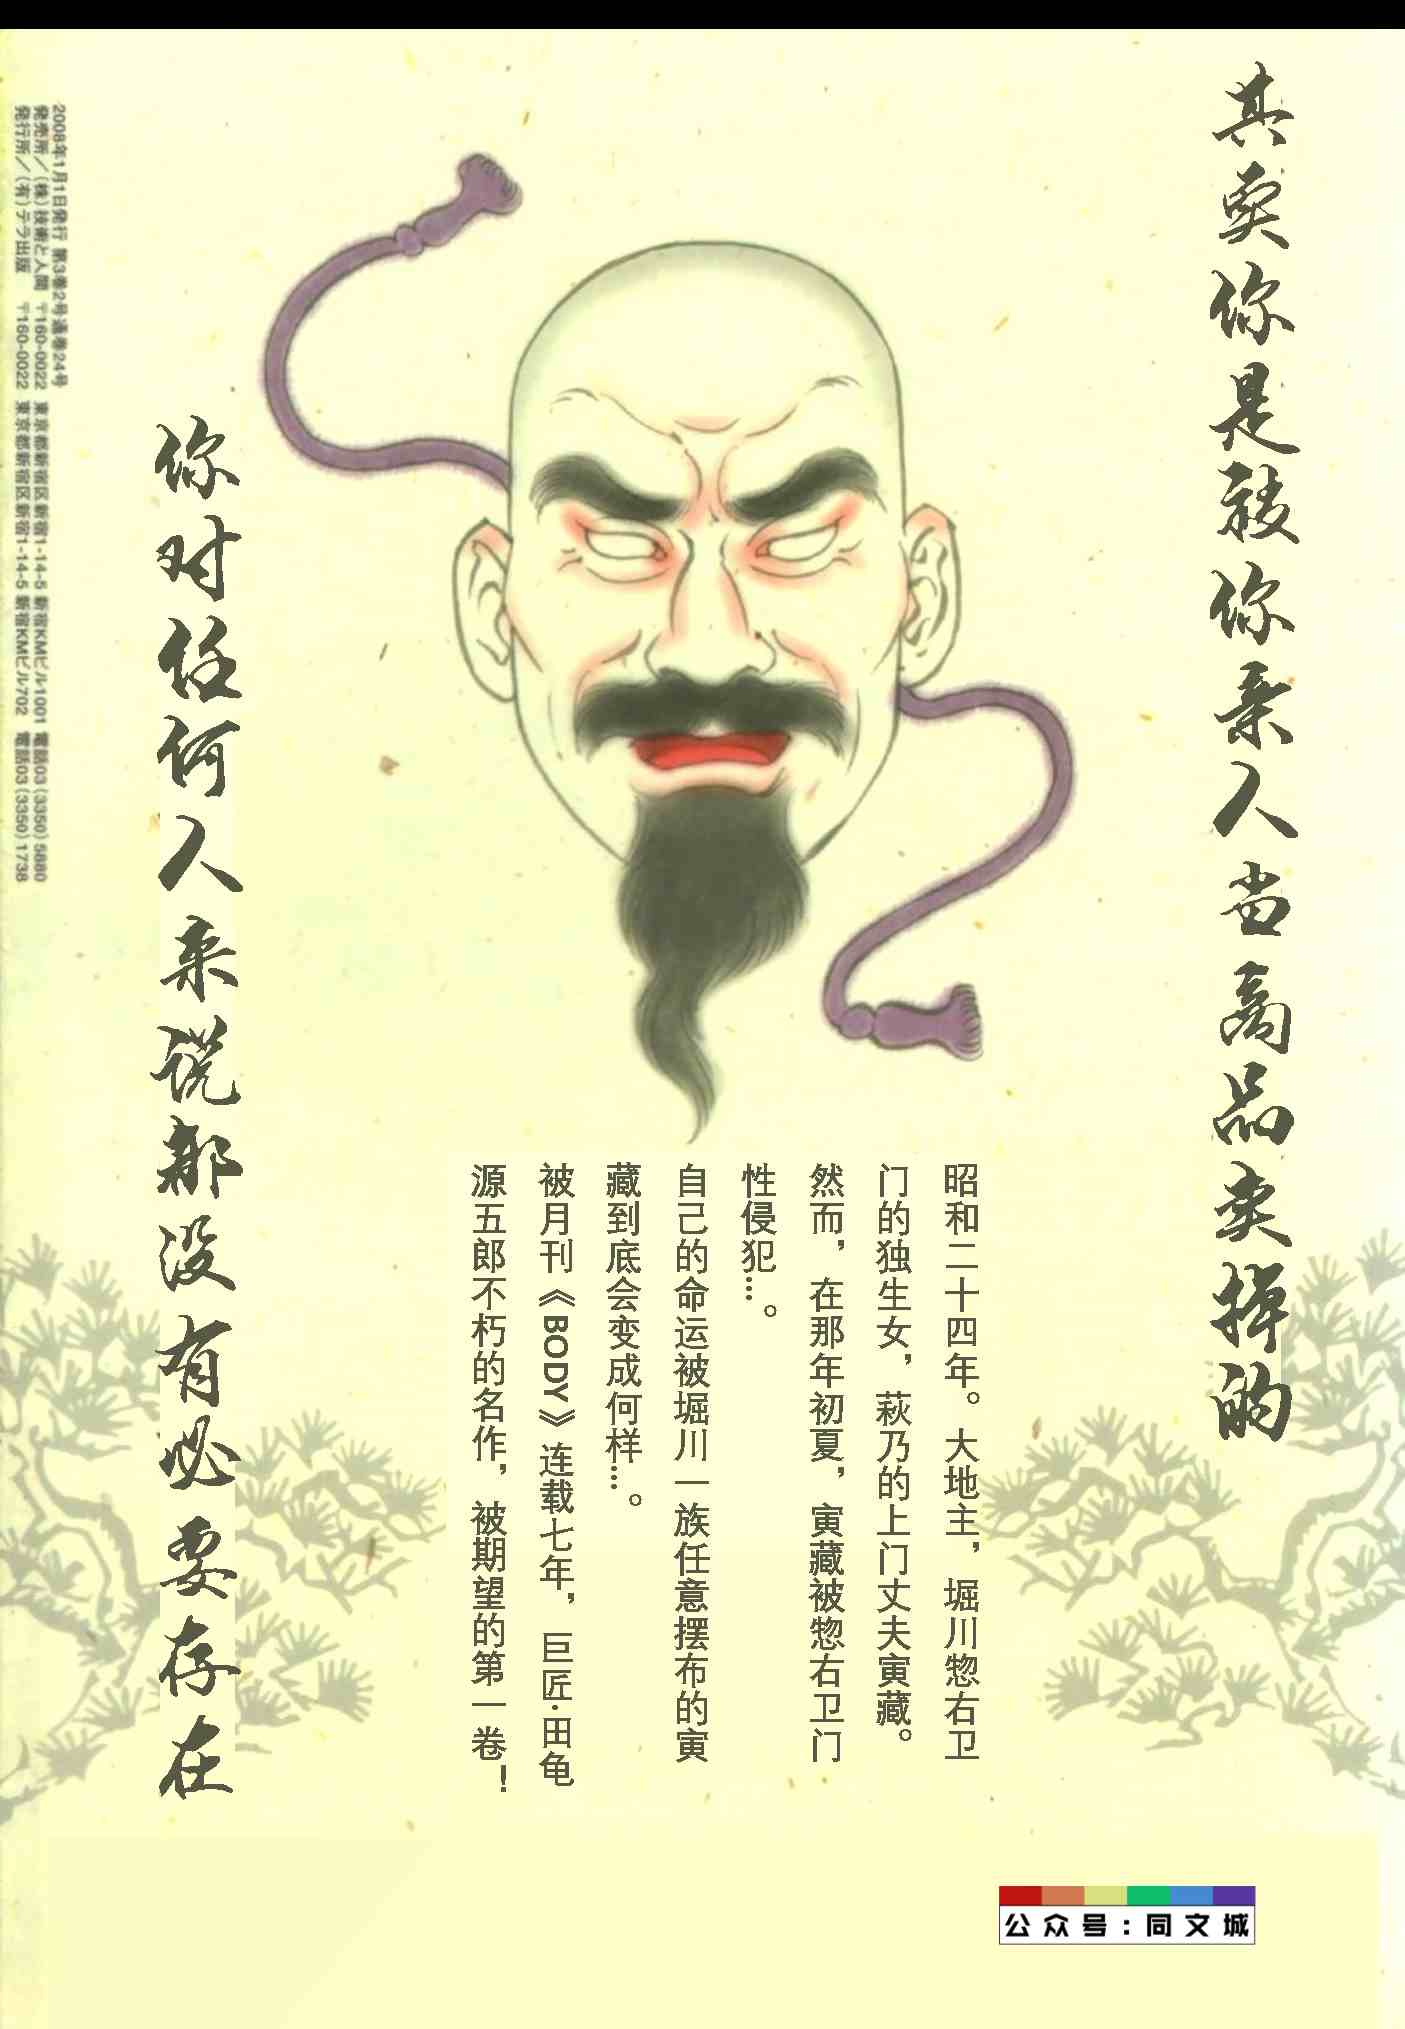 其卖你是被你亲人当商品卖掉的
昭和二十四年。大地主，堀川惣右卫
门的独生女，萩乃的上门丈夫寅藏。
然而，在那年初夏，寅藏被惣右卫门
性侵犯…。
自己的命运被堀川一族任意摆布的寅
藏到底会变成何样…。
被月刊《BODY》连载七年，巨匠·田龟
源五郎不朽的名作，被期望的第一卷！
你对任何人来说都没有必要存在
2008年1月1日発行 第3巻2号通巻24号
発売所／(株)技術と人間 〒160-0022 東京都新宿区新宿1-14-5 新宿KMビル1001 電話03(3350)5880
発行所／(有)テラ出版 〒160-0022 東京都新宿区新宿1-14-5 新宿KMビル702 電話03(3350)1738
公众号：同文城